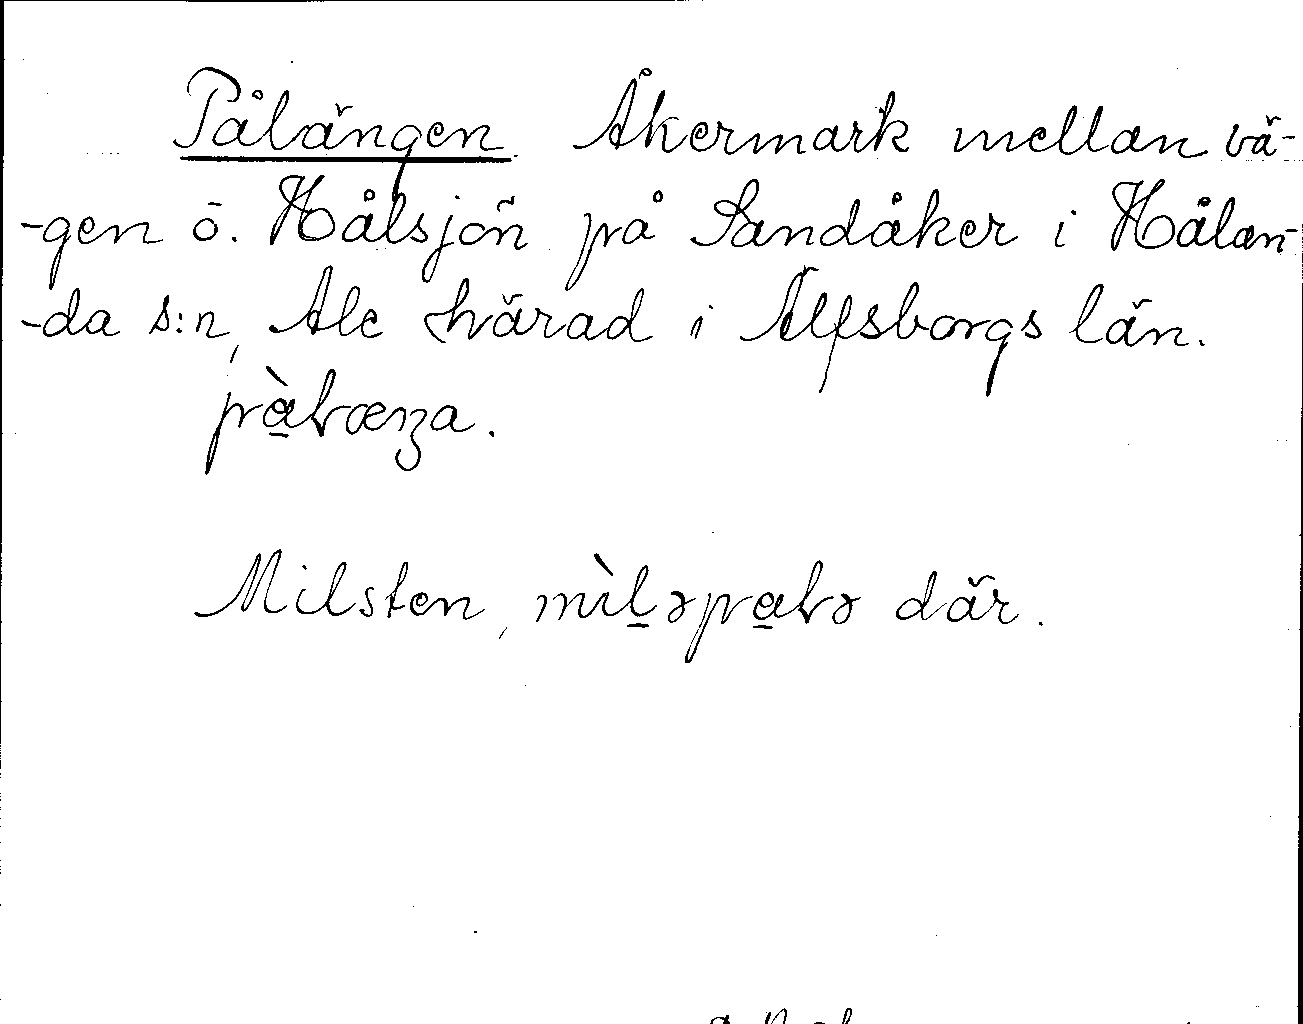 Pålängen. Åkermark mellan vä-
-gen o. Hålsjön på Sandåker i Hålan-
-da s:n, Ale härad i Älfsborgs län.
Milsten, där.